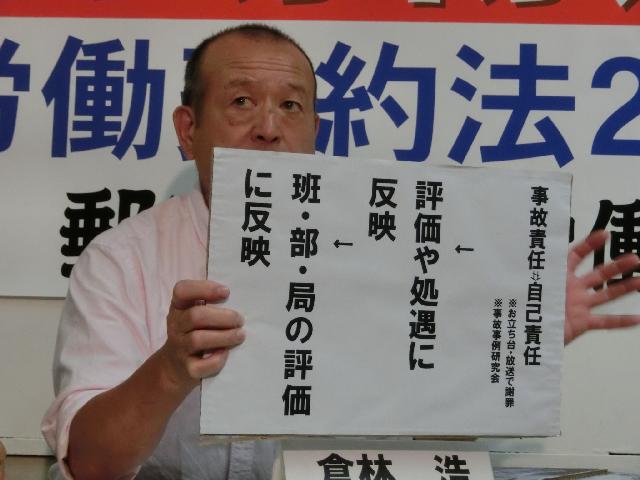 労働 約法2
郵 働
事故責任⇔自己責任
※お立ち台・放送で謝罪
※事故事例研究会
↓
評価や処遇に
反映
↓
班・部・局の評価
に反映
倉林 浩